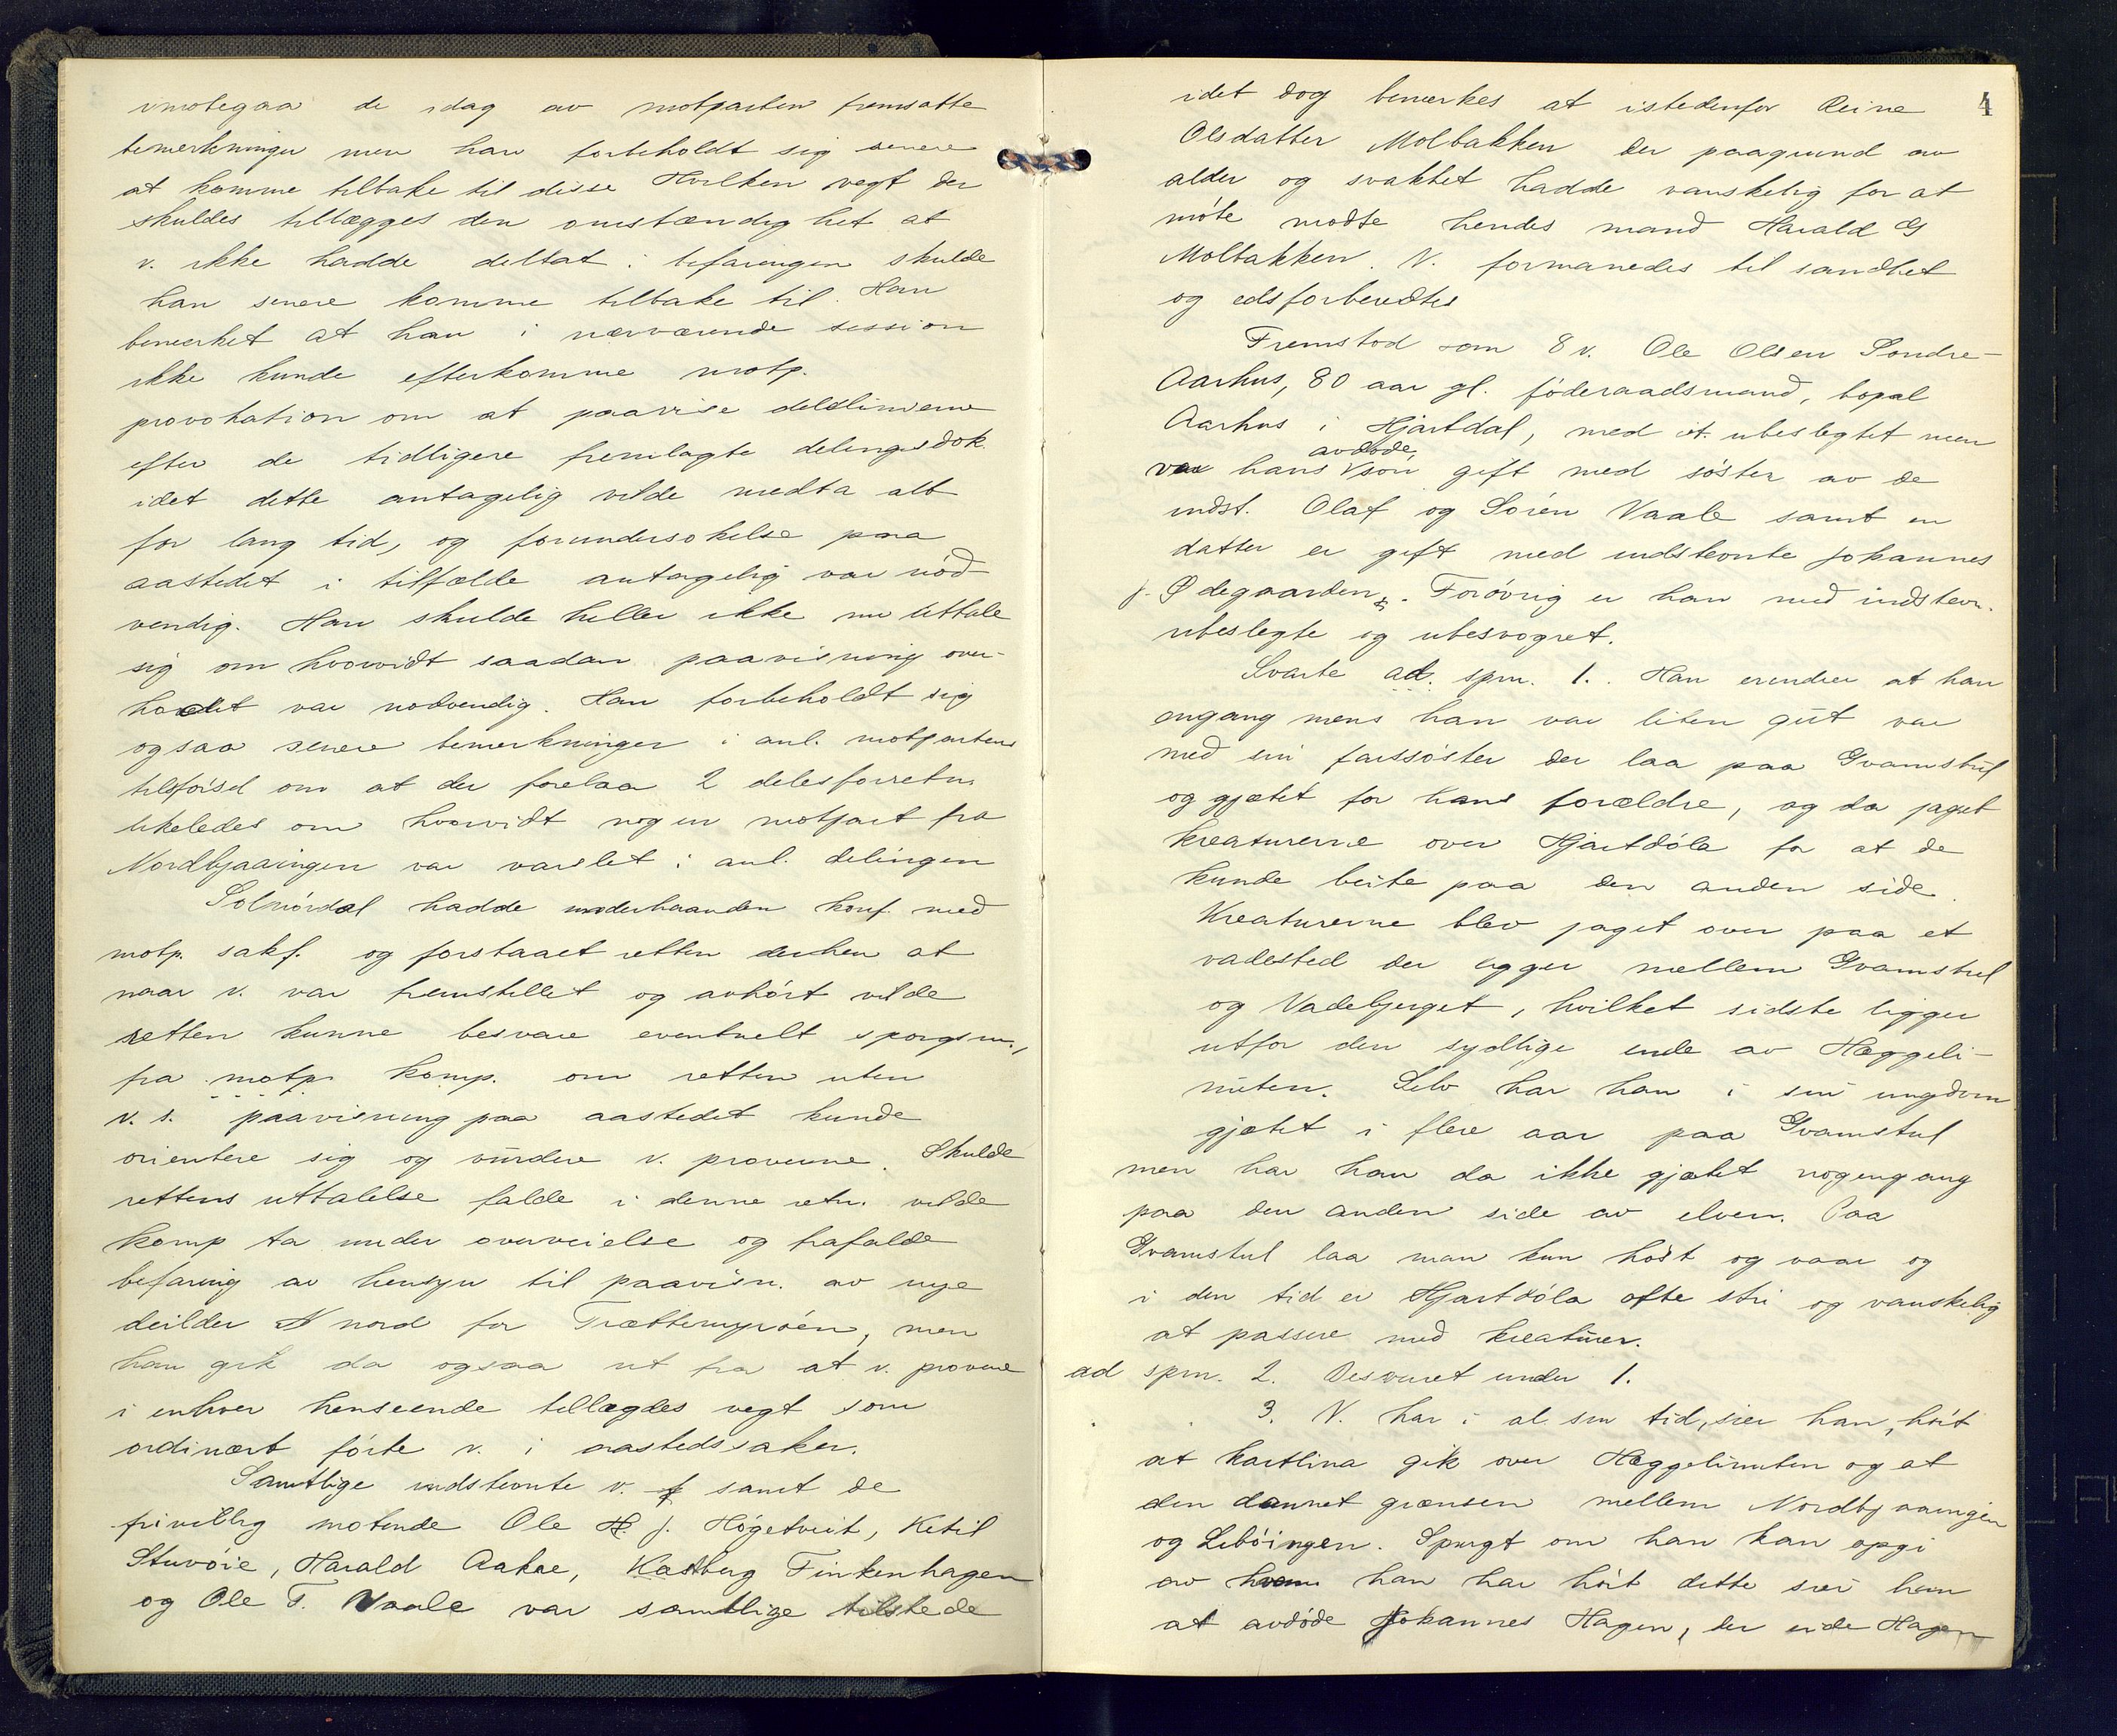 imøtegaa de idag av motparten fremsatte
bemerkninger men han forbeholdt sig senere
at komme tilbake til disse Hvilken vegt der
skuldes tillægges den omstændighet at
v. ikke hadde deltat i befaringen skulde
han senere komme tilbake til. Han
bemerket at han i nærværende session
ikke kunde efterkomme motp.
provokation om at paavise delelinierne
efter de tidligere fremlagte delingsdok.
idet dette antagelig vilde medta alt
for lang tid, og forundersøkelse paa
aastedet i tilfælde antagelig var nød-
vendig. Han skulde heller ikke nu uttale
sig om hvorvidt saadan paavisning over-
hodet var nødvendig. Han forbeholdt sig
ogsaa senere bemerkninger i anl. motpartens
tilførsel om at der forelaa 2 delesforretn.
likeledes om hvorvidt nogen motpart fra
Nordbjaaingen var varslet i anl. delingen
Solnørdal hadde underhaanden konf. med
motp. sakf. og forstaaet retten derhen at
naar v. var fremstillet og avhørt vilde
retten kunne besvare eventuelt spørgsm.,
fra motp. komp. om retten uten
v. s. paavisning paa aastedet kunde
orientere sig og vurdere v. proverne. Skulde
rettens uttalelse falde i denne retn. vilde
komp ta under overveielse og frafalde
befaring av hensyn til paavisn. av nye
deilder nord for Trættemyroén, men
han gik da ogsaa ut fra at v. provene
i enhver henseende tillægdes vegt som
ordinært førte v. i aastedssaker.
Samtlige indstevnte v. samt de
frivillig møtende Ole H. J. Høgetveit, Ketil
Stuvøie, Harald Aakre, Kastberg Finkenhagen
og Ole T. Vaale var samtlige tilstede
4
idet dog bemerkes at istedenfor Reine
Olsdatter Molbakken der paagrund av
alder og svakhet hadde vanskelig for at
møte mødte hendes mand Harald G
Molbakken. V. formanedes til sandhet
og edsforberedtes
Fremstod som 8 v. Ole Olsen Søndre-
Aarhus, 80 aar gl. føderaadsmand, bopæl
Aarhus i Hjartdal, med cit. ubeslegtet men
avdøde
var hans søn gift med søster av de
indst. Olaf og Søren Vaale samt en
datter er gift med indstevnte Johannes
J. Ødegaarden. Forøvrig er han med indstevn.
ubeslegte og ubesvogret.
Svarte ad. spm. 1. Han erindrer at han
engang mens han var liten gut var
med sin farssøster der laa paa Gvamstul
og gjætet for hans forældre, og da jaget
kreaturerne over Hjartdøla for at de
kunde beite paa den anden side.
Kreaturerne blev jaget over paa et
vadested der ligger mellem Gvamstul
og Vadebjerget, hvilket sidste ligger
utfor den sydlige ende av Hæggeli-
nuten. Selv har han i sin ungdom
gjætet i flere aar paa Gvamstul
men har han da ikke gjætet nogengang
paa den anden side av elven. Paa
Gvamstul laa man kun høst og vaar og
i den tid er Hjartdøla ofte stri og vanskelig
at passere med kreaturer.
ad spm. 2. Besvaret under 1.
" " 3. V. har i al sin tid, sier han, hørt
at kastlina gik over Hæggelinuten og at
den dannet grænsen mellem Nordbjaaingen
og Libøingen. Spurgt om han kan opgi
av hvem han har hørt dette sier han
at avdøde Johannes Hagen, der eide Hagen